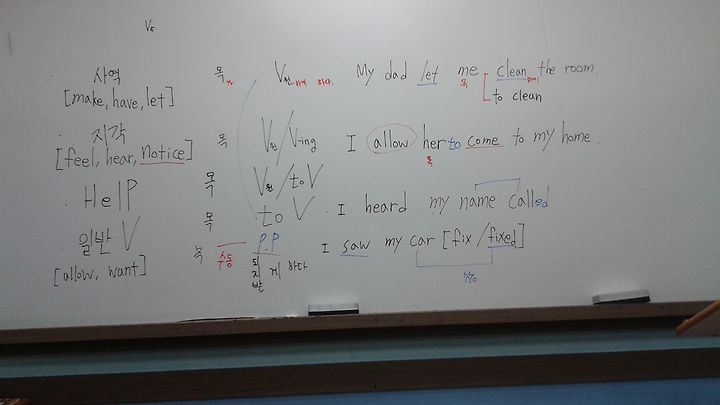 V5
사역 목 V원 하게 하다. My dad let me clean the room.
[make, have, let] 목 to clean
지각 목 V원/V-ing I allow her to come to my home
[feel, hear, notice] 목
Help 목 V원/to V
일반 V 목 to V I heard my name called
[allow, want] 목 수동 P.P I saw my car [fix/fixed]
되 지 받 게 하다 수동